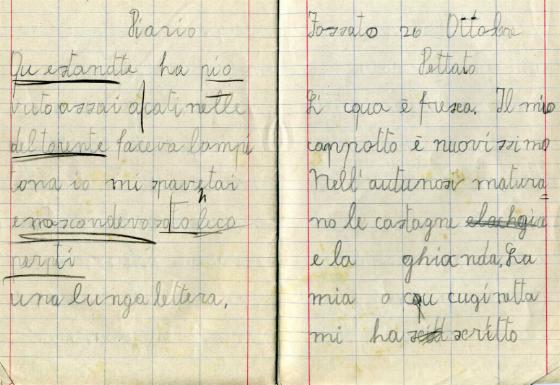 Diario
Questandte ha pio
vuto assai a catinelle
del torente faceva lampi
tona io mi spavetai
e nascondevo soto leco
perpti
una lunga lettera.
Fossato 26 Ottobre
Dettato
L' cqua è fresca. Il mio
cappotto è nuovissimo
Nell' autunosi matura
no le castagne
e la ghianda. La
mia a cuginetta
mi ha scritto